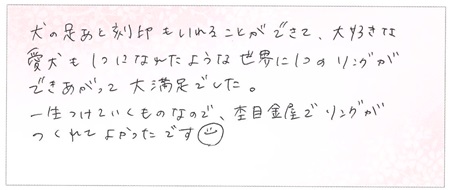 犬の足あと刻印もいれることができて、大好きな
愛犬も1つになれたような世界に1つのリングが
できあがって大満足でした。
一生つけていくものなので、杢目金屋でリングが
つくれてよかったです